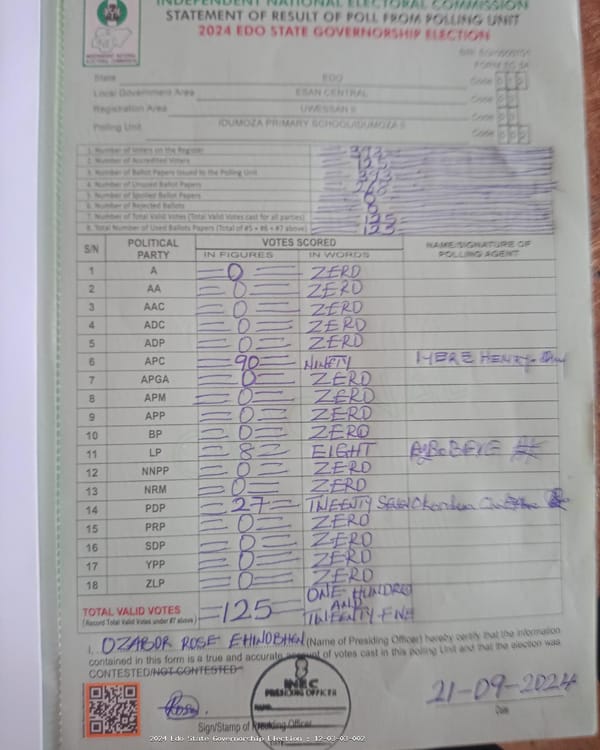 INDEPENDENT NATIONAL ELECTORAL COMMISSION
STATEMENT OF RESULT OF POLL FROM POLLING UNIT
2024 EDO STATE GOVERNORSHIP ELECTION
FORM EC 8A
State EDO Code
Local Government Area ESAN CENTRAL Code
Registration Area UWESSAN II Code
Polling Unit IDUMOZA PRIMARY SCHOOL/IDUMOZA II Code
1. Number of Voters on the Register
2. Number of Accredited Voters
3. Number of Ballot Papers Issued to the Polling Unit
4. Number of Unused Ballot Papers 268
5. Number of Spoiled Ballot Papers 0
6. Number of Rejected Ballots
7. Number of Total Valid Votes (Total Valid Votes cast for all parties) 125
8. Total Number of Used Ballots Papers (Total of #5 + #6 + #7 above) 125
S/N POLITICAL PARTY VOTES SCORED NAME/SIGNATURE OF POLLING AGENT
IN FIGURES IN WORDS
1 A 0 ZERO
2 AA 0 ZERO
3 AAC 0 ZERO
4 ADC 0 ZERO
5 ADP 0 ZERO
6 APC 90 NINETY HENRY
7 APGA 0 ZERO
8 APM 0 ZERO
9 APP 0 ZERO
10 BP 0 ZERO
11 LP 8 EIGHT
12 NNPP 0 ZERO
13 NRM 0 ZERO
14 PDP 27 TWEENTY SEVEN
15 PRP 0 ZERO
16 SDP 0 ZERO
17 YPP 0 ZERO
18 ZLP 0 ZERO
TOTAL VALID VOTES 125 ONE HUNDRED AND TWEENTY FIVE
(Record Total Valid Votes under #7 above)
I, OZABOR ROSE EHINOBHEN (Name of Presiding Officer) hereby certify that the information
contained in this form is a true and accurate account of votes cast in this polling Unit and that the election was
CONTESTED/NOT CONTESTED
INEC
PRESIDING OFFICER
21-09-2024
Sign/Stamp of Presiding Officer
2024 Edo State Governorship Election : 12-03-03-002